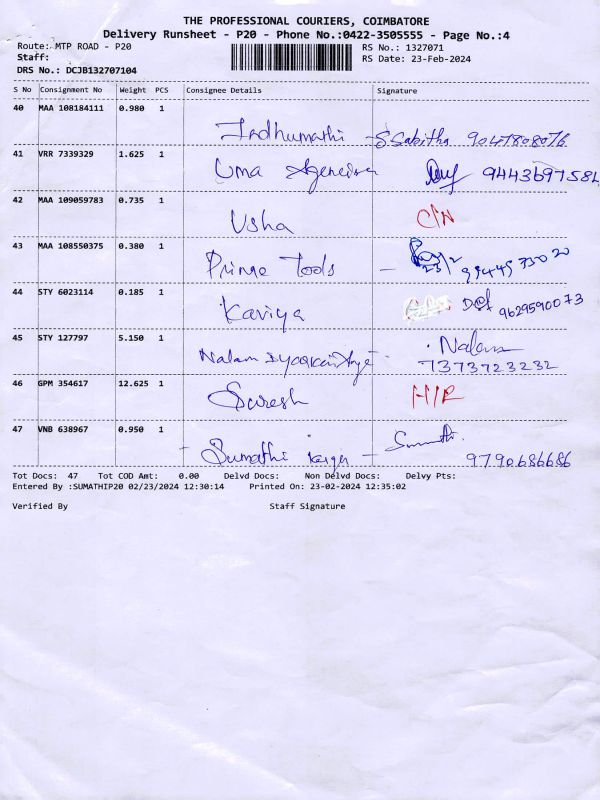 THE PROFESSIONAL COURIERS, COIMBATORE
Delivery Runsheet - P20 - Phone No.:0422-3505555 - Page No.:4
Route: MTP ROAD - P20 RS No.: 1327071
Staff: RS Date: 23-Feb-2024
DRS No.: DCJB132707104
S No Consignment No Weight PCS Consignee Details Signature
40 MAA 108184111 0.980 1
Indhumathi - S Sabitha 9047808076
41 VRR 7339329 1.625 1
Uma 9443697584
42 MAA 109059783 0.735 1
Usha C/N
43 MAA 108550375 0.380 1
Prime Tools - 23/2
44 STY 6023114 0.185 1
Kaviya 9629590073
45 STY 127797 5.150 1
Nalam Nalam
7373723232
46 GPM 354617 12.625 1
Suresh H/R
47 VNB 638967 0.950 1
- Sumathi - Sumathi
9790686686
Tot Docs: 47 Tot COD Amt: 0.00 Delvd Docs: Non Delvd Docs: Delvy Pts:
Entered By :SUMATHIP20 02/23/2024 12:30:14 Printed On: 23-02-2024 12:35:02
Verified By Staff Signature